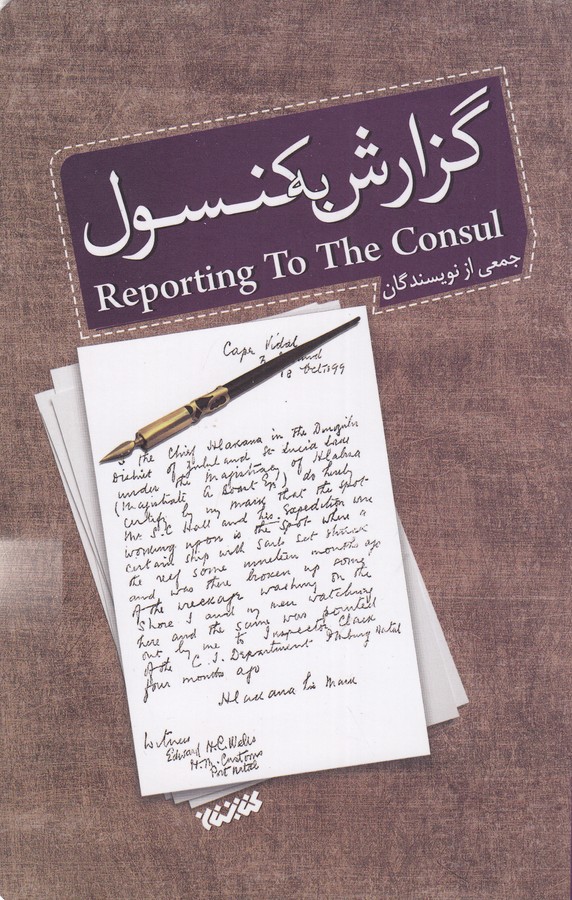 گزارش به کنسول
Reporting To The Consul
جمعی از نویسندگان
Cape Vidal
18 Oct. 99
the Chief Hlawana in the
District of Zululand St Lucia Lake
under the Magistracy of Hlabisa
(Magistrate A Boast Esq) do hereby
certify by my mark that the spot
Mr. S.C Hall and his Expedition are
working upon is the spot where a
certain ship with Sails Set struck
the reef some nineteen months ago
and was there broken up some
of the wreckage washing on the
shore I and my men watching
here and the same was pointed
out by me to Inspector Clark
of the C. I. Department Natal
four months ago
his Mark
Witness
Edward H.C. Wells
H.M. Customs
Port Natal